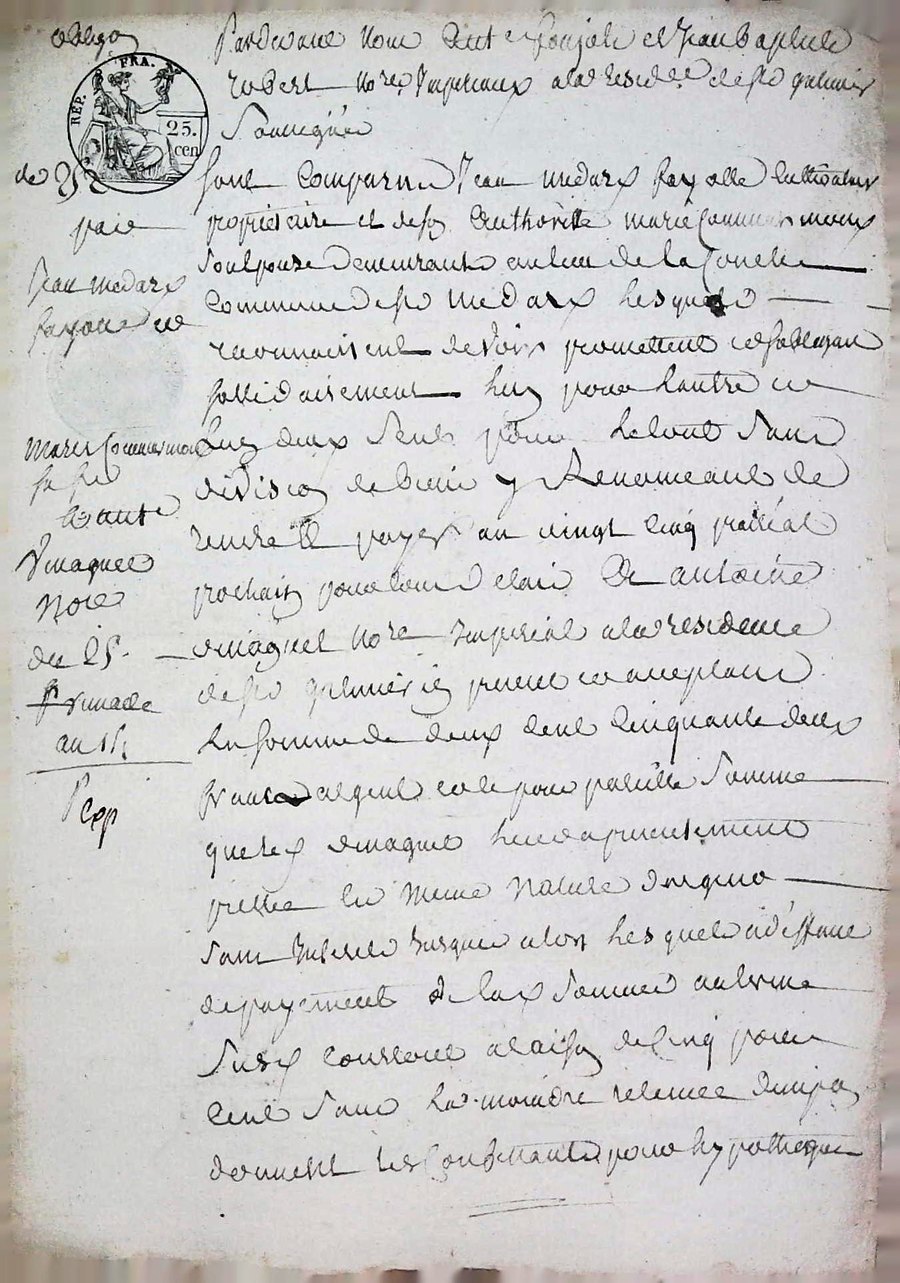 obligon
RÉP. FRA.
25.
cen
de 252
paié
Jean medard
fayolle et
Marie Commarmond
sa fe
a ant
Dmaguet
Nore
du 25.
frimaire
an 14
Pardevant Nous et Jean Baptiste
robert Nores Imperiaux a la residce de st galmier
Soussignés
sont Comparus Jean medard fayolle Cultivateur
propriétaire et de son Authorité marie Commarmond
Son Epouze demeurants au lieu de la
Commune de st medard Lesquels
reconnaissent devoir promettent et sobligent
sollidairement Lun pour Lautre et
Lun deux Seul pour Le tout Sans
division de biens y Renonceant de
rendre et payer au vingt Cinq prairéal
prochain pour tout delai à Me antoine
dmaguet Nore Impérial a la residence
de st galmier ici présent et acceptant
La somme de deux Cent Cinquante deux
francs argent pour pareille Somme
que led dmaguet Leur a présentement
prettée en Meme Nature d'especes
Sans Intérêt Jusques alors Lesquels à déffaut
de payement de lad Somme au terme
Susd Courront a raison de Cinq pour
Cent Sans La moindre retenue
donnent Les Constituants pour hypotheque